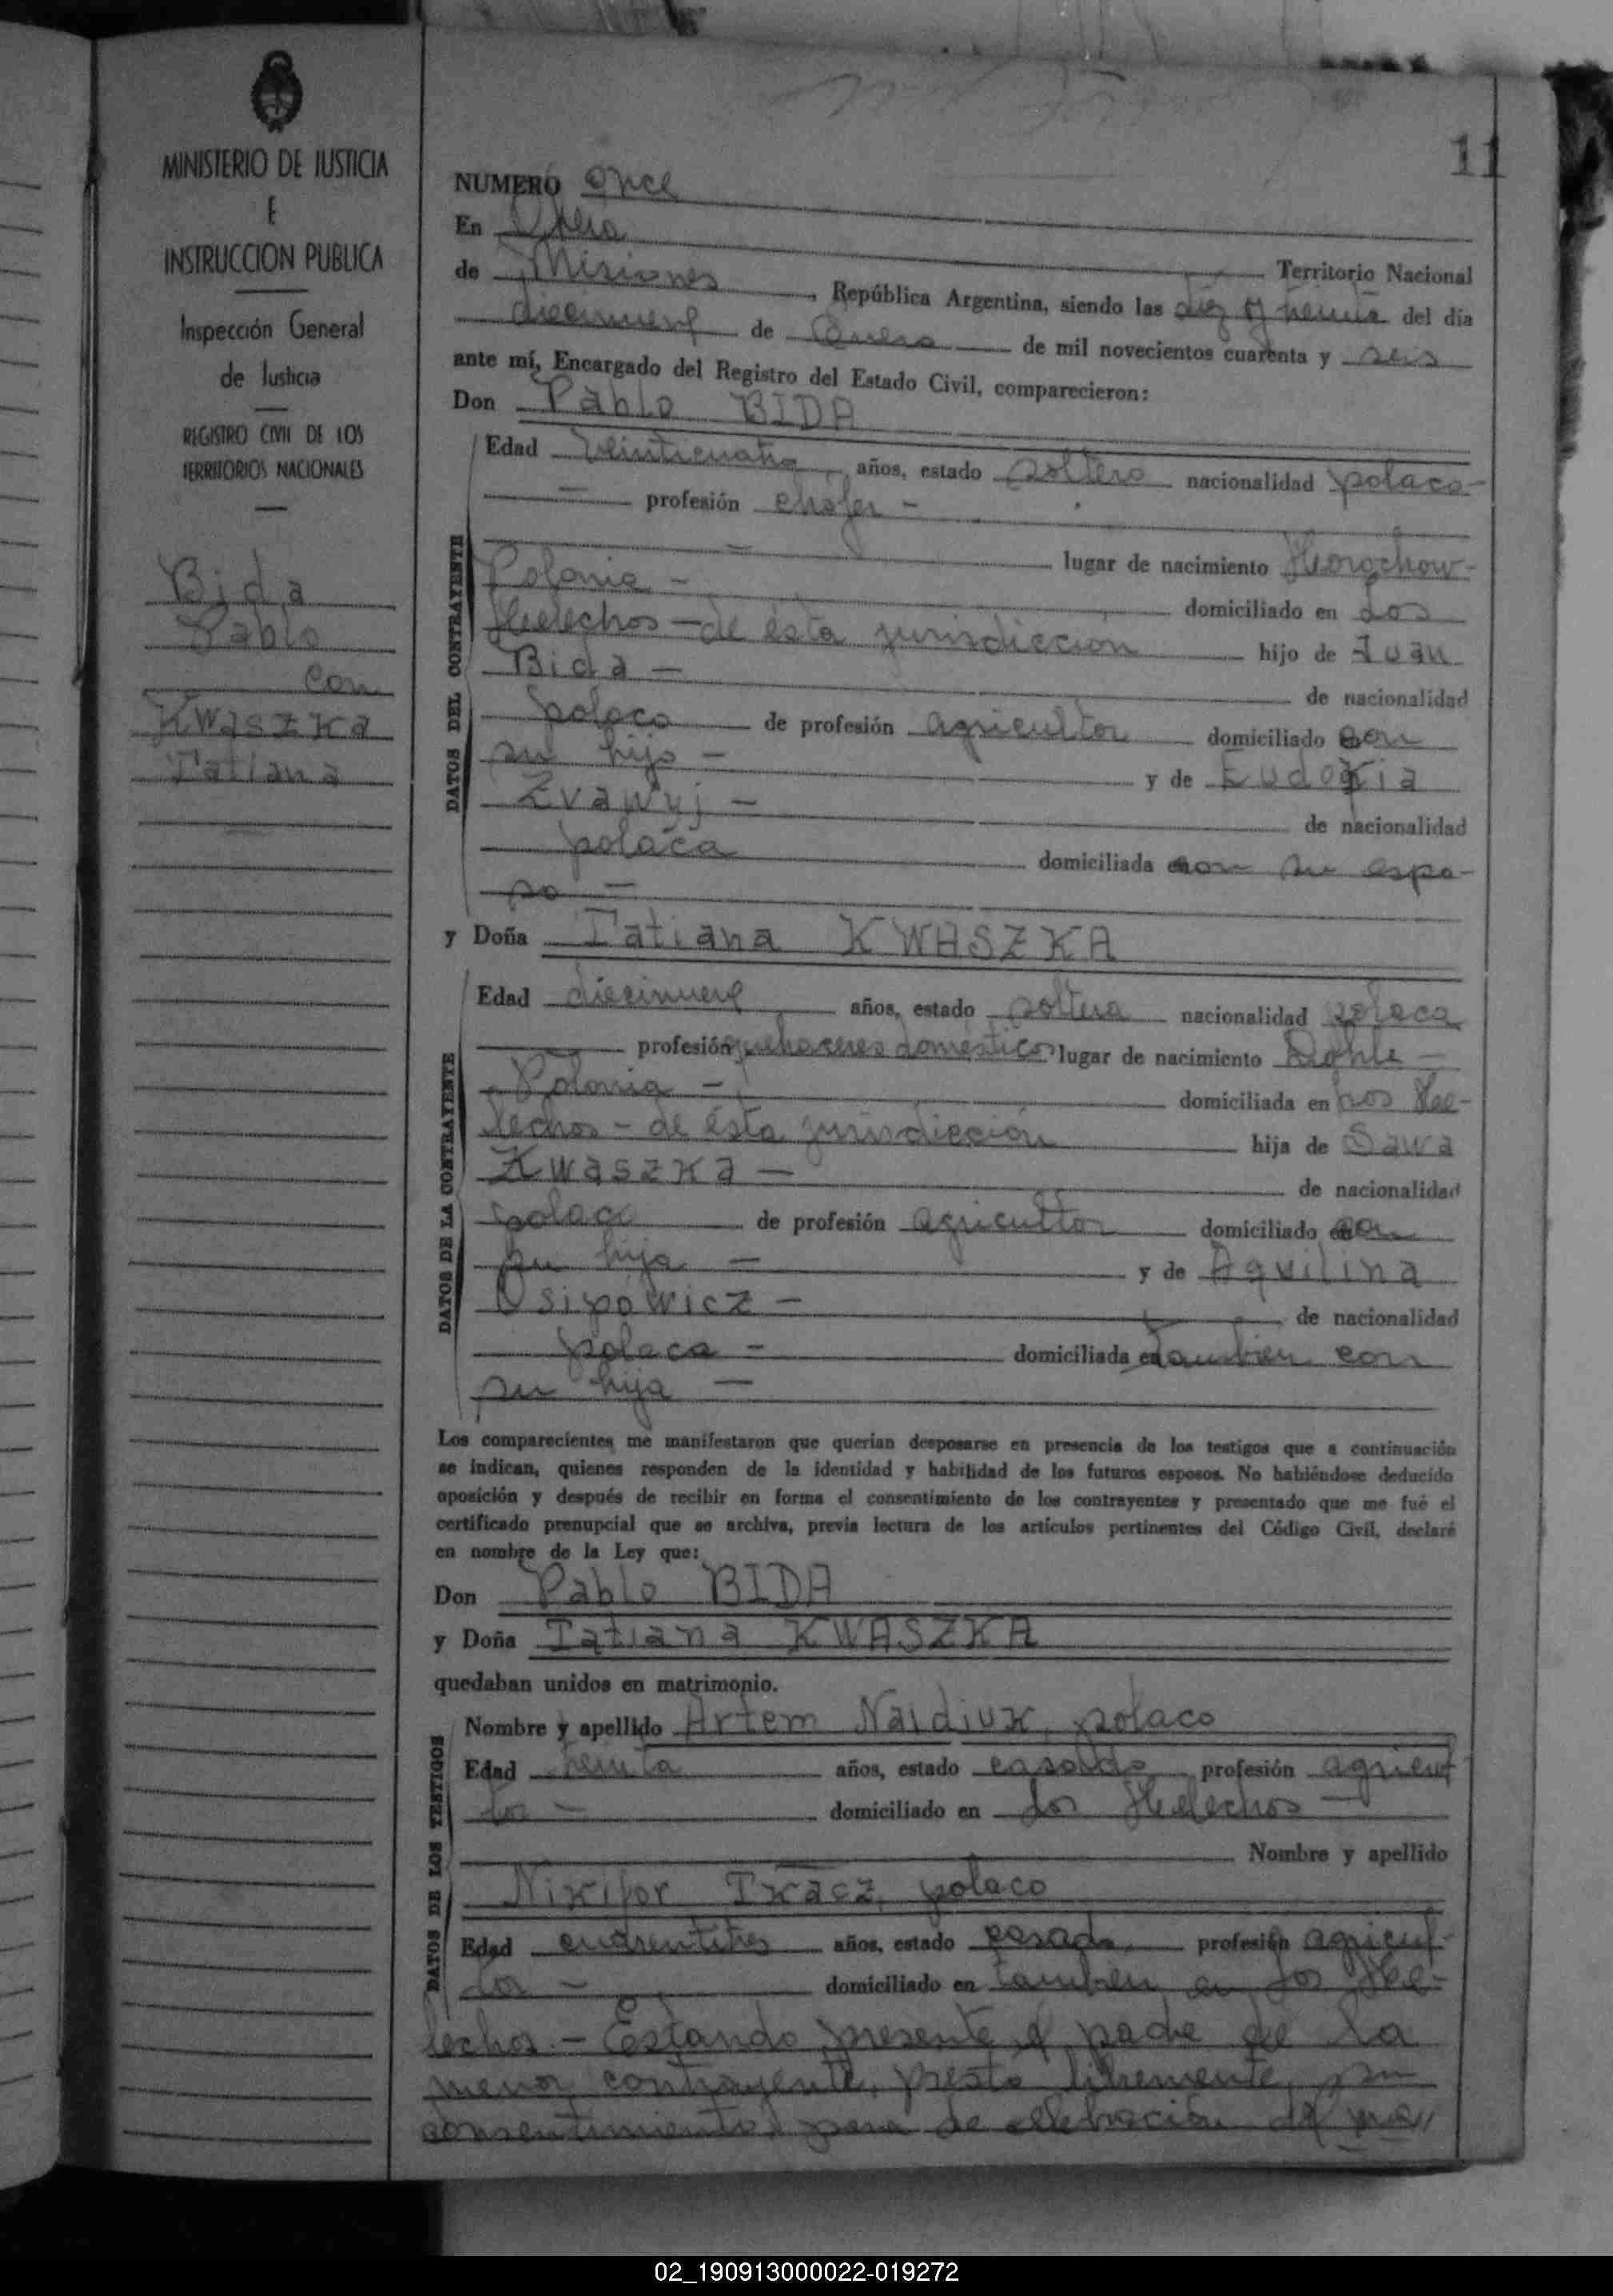 11
MINISTERIO DE JUSTICIA
E
INSTRUCCION PUBLICA
Inspección General
de Justicia
REGISTRO CIVIL DE LOS
TERRITORIOS NACIONALES
Bida
Pablo
con
Kwaszka
Tatiana
NUMERO once
En Obera
Territorio Nacional
de Misiones, República Argentina, siendo las diez y treinta del día
diecinueve de Enero de mil novecientos cuarenta y seis
ante mí, Encargado del Registro del Estado Civil, comparecieron:
Don Pablo BIDA
DATOS DEL CONTRAYENTE
Edad veinticuatro años, estado soltero nacionalidad polaco-
— profesión chofer -
— lugar de nacimiento Horochow-
Polonia - domiciliado en Los
Helechos - de ésta jurisdiccion hijo de Juan
Bida - de nacionalidad
polaco de profesión agricultor domiciliado con
su hijo - y de Eudokia
- de nacionalidad
polaca domiciliada con su espo-
so -
y Doña Tatiana KWASZKA
DATOS DE LA CONTRAYENTE
Edad diecinueve años, estado soltera nacionalidad polaca
profesión quehaceres domésticos lugar de nacimiento
Polonia - domiciliada en Los He-
lechos - de ésta jurisdicción hija de Sawa
Kwaszka - de nacionalidad
polaco de profesión agricultor domiciliado con
su hija - y de Aquilina
Osipowicz - de nacionalidad
polaca - domiciliada en tambien con
su hija -
Los comparecientes me manifestaron que querían desposarse en presencia de los testigos que a continuación
se indican, quienes responden de la identidad y habilidad de los futuros esposos. No habiéndose deducido
oposición y después de recibir en forma el consentimiento de los contrayentes y presentado que me fué el
certificado prenupcial que se archiva, previa lectura de los artículos pertinentes del Código Civil, declaré
en nombre de la Ley que:
Don Pablo BIDA
y Doña Tatiana KWASZKA
quedaban unidos en matrimonio.
DATOS DE LOS TESTIGOS
Nombre y apellido Artem Naidiuk, polaco
Edad treinta años, estado casado profesión agricul
tor - domiciliado en Los Helechos -
Nombre y apellido
Nikifor Tkacz, polaco
Edad cuarentitres años, estado casado, profesión agricul-
tor - domiciliado en tambien en Los He-
lechos. - Estando presente el padre de la
menor contrayente, prestó libremente su
consentimiento para la celebración del ma,,
02_190913000022-019272